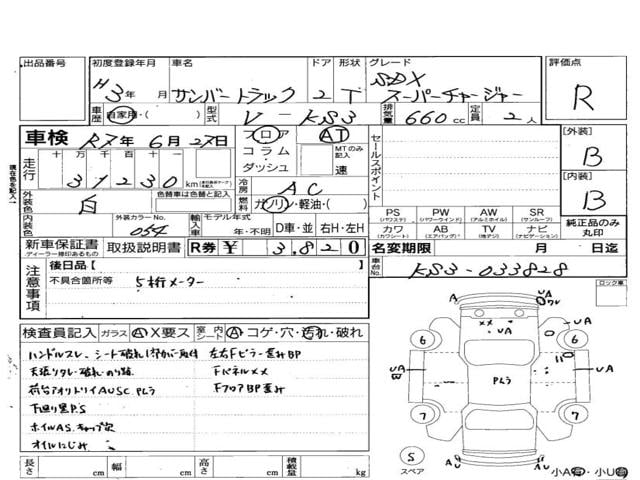 出品番号 初度登録年月 車名 ドア 形状 グレード 評価点
H3年 月 サンバートラック 2 T SDX スーパーチャージャー R
車歴 自家用・( ) 型式 V-KS3 排気量 660cc 定員 2人
車検 R7年6月27日 フロア AT セールスポイント [外装]
コラム MTのみ記入 B
走行 十万千百十一 ダッシュ 速
31230 km [内装]
冷房 AC B
外装色 白 色替車は色替と記入 燃料 ガソリン・軽油・( )
PS PW AW SR 純正品のみ丸印
(パワステ) (パワーウインドウ) (アルミホイル) (サンルーフ)
内装色 外装カラーNo. 054 輸入車 モデル年式 年・不明 D車・並 右H・左H カワ AB TV ナビ
(カワシート) (エアバッグ) (地デジ) (ナビゲーション)
新車保証書 取扱説明書 R券 ¥ 3,820 名変期限 月 日迄
ディーラー捺印あるもの
注意事項 後日品[ ] 車台No. KS3-033828
不具合箇所等 5桁メーター
ロック車
検査員記入 ガラス A X要ス 室内シート A コゲ・穴・汚れ・破れ
ハンドルスレ、シート破れ 左右Fピラー歪みBP
天張りタレ・破れ・のり跡 FパネルXX
荷台アオリトリイAUSC PLラ FフロアBP歪み
下廻り黒P.S
ホイルAS.キャップ欠
オイルにじみ
長さ cm 幅 cm 高さ cm 積載量 kg
A
UA
XX UA
A
UA
B
PLラ
UA
6 6
7 7
S
スペア
A
U
A
U
小A・小U